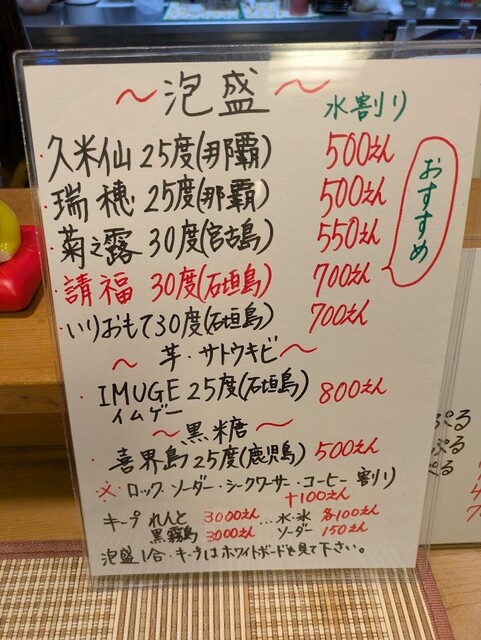 ～泡盛～
水割り
・久米仙 25度(那覇) 500えん
・瑞穂 25度(那覇) 500えん
・菊之露 30度(宮古島) 550えん
・請福 30度(石垣島) 700えん
おすすめ
・いりおもて30度(石垣島) 700えん
～芋・サトウキビ～
・IMUGE 25度(石垣島) 800えん
イムゲー
～黒糖～
・喜界島25度(鹿児島) 500えん
※・ロック・ソーダー・シークワーサー・コーヒー 割り
+100えん
キープ れんと 3000えん …水・氷 各100えん
黒霧島 3000えん ソーダー 150えん
泡盛1合・キープはホワイトボードを見て下さい。
ぷる
ぷる
ぷる